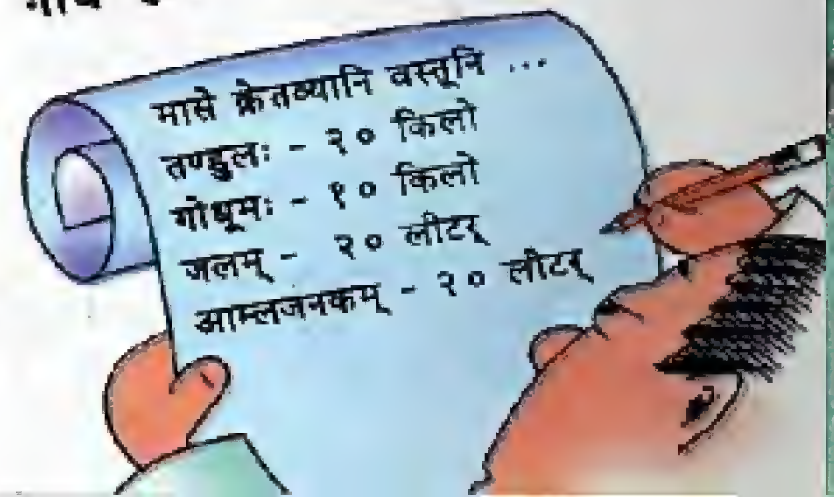 मासे क्रेतव्यानि वस्तूनि ...
तण्डुलः - २० किलो
गोधूमः - १० किलो
जलम् - २० लीटर्
आम्लजनकम् - २० लीटर्